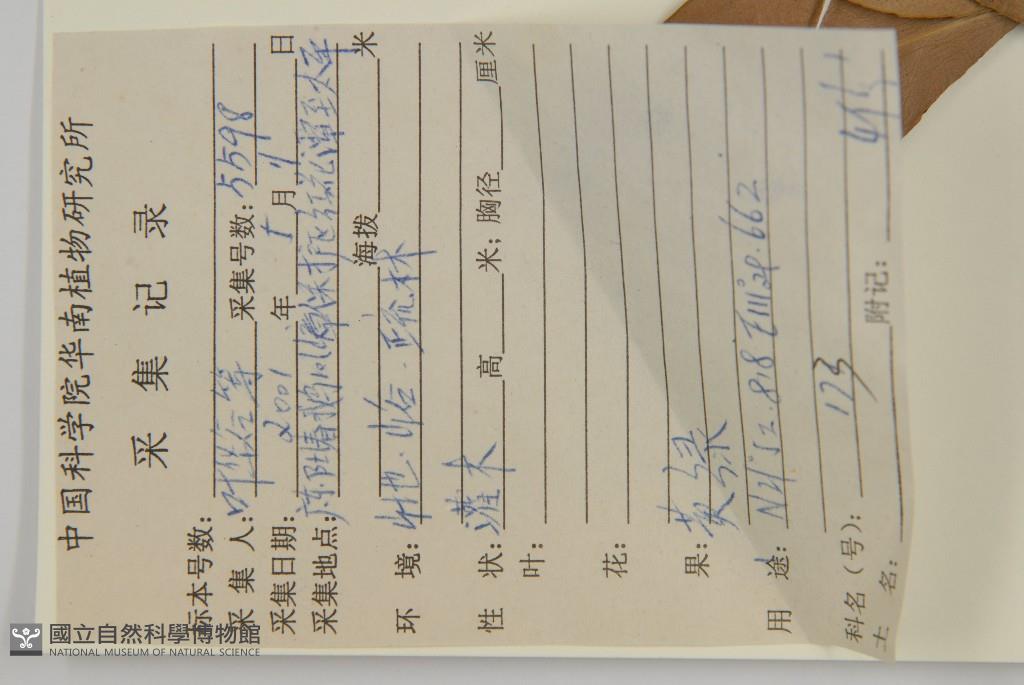 中国科学院华南植物研究所
采集记录
标本号数:
采集人:叶华谷等 采集号数:5598
采集日期: 2001 年 5 月 4 日
采集地点:广东阳春鹅凰嶂保护区红花潭至水库
海拨 米
环境:山地·山谷·疏林
性状:灌木 高 米; 胸径 厘米
叶:
花:
果:黄绿
用途:N21°52.818 E111°28.662
科名(号): 123
土名: 附记:
國立自然科學博物館
NATIONAL MUSEUM OF NATURAL SCIENCE